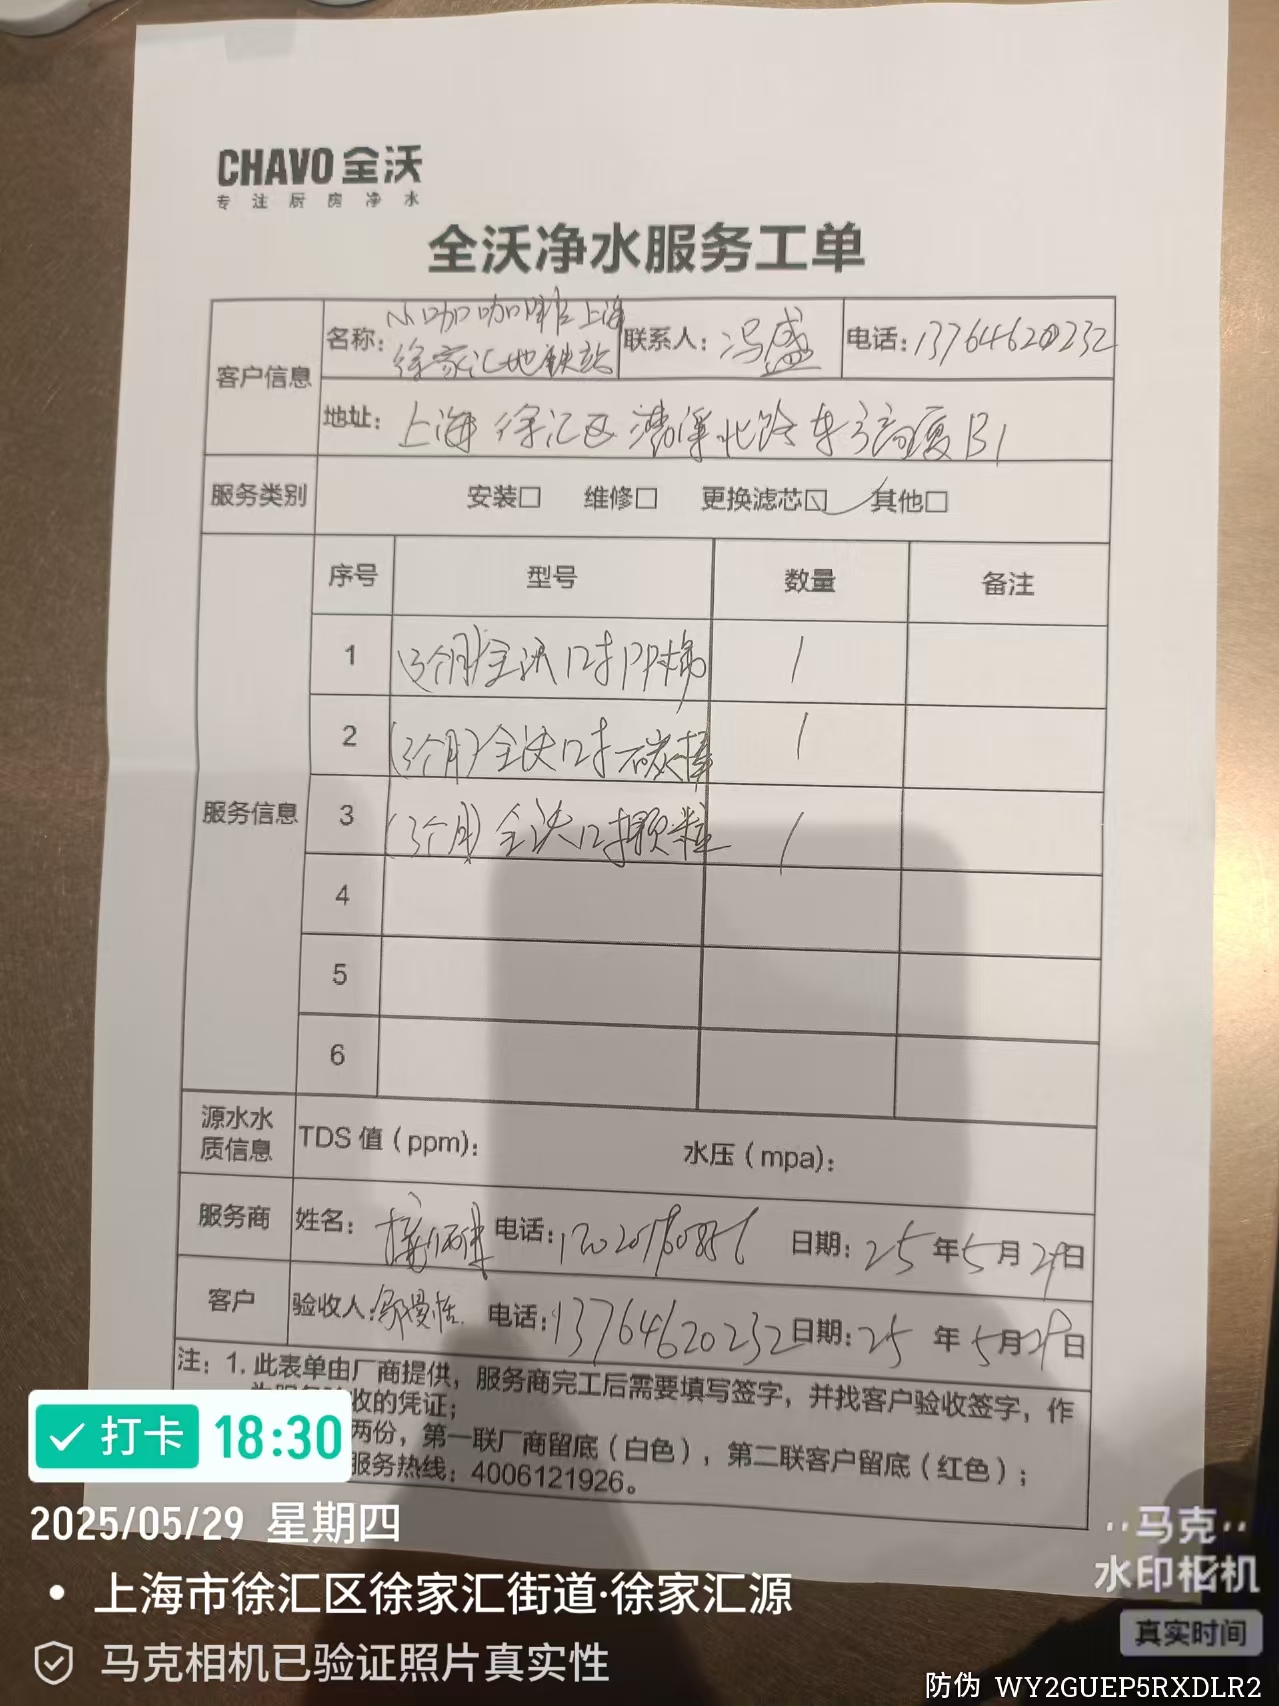 CHAVO 全沃
专注厨房净水
全沃净水服务工单
客户信息
名称: 小咖咖啡上海
徐家汇地铁站
联系人: 冯盛
电话: 13764620232
地址: 上海 徐汇区 漕溪北路 B1
服务类别 安装□ 维修□ 更换滤芯☑ 其他□
服务信息
序号 型号 数量 备注
1 (3个月)全沃12寸PP棉 1
2 (3个月)全沃12寸碳棒 1
3 (3个月)全沃12寸颗粒 1
4
5
6
源水水质信息 TDS 值(ppm): 水压(mpa):
服务商 姓名: 电话: 日期: 25 年 5 月 29 日
客户 验收人: 电话: 13764620232 日期: 25 年 5 月 29 日
注: 1. 此表单由厂商提供，服务商完工后需要填写签字，并找客户验收签字，作
收的凭证；
两份，第一联厂商留底（白色），第二联客户留底（红色）；
服务热线: 4006121926。
打卡 18:30
2025/05/29 星期四
上海市徐汇区徐家汇街道·徐家汇源
马克相机已验证照片真实性
马克
水印相机
真实时间
防伪 WY2GUEP5RXDLR2